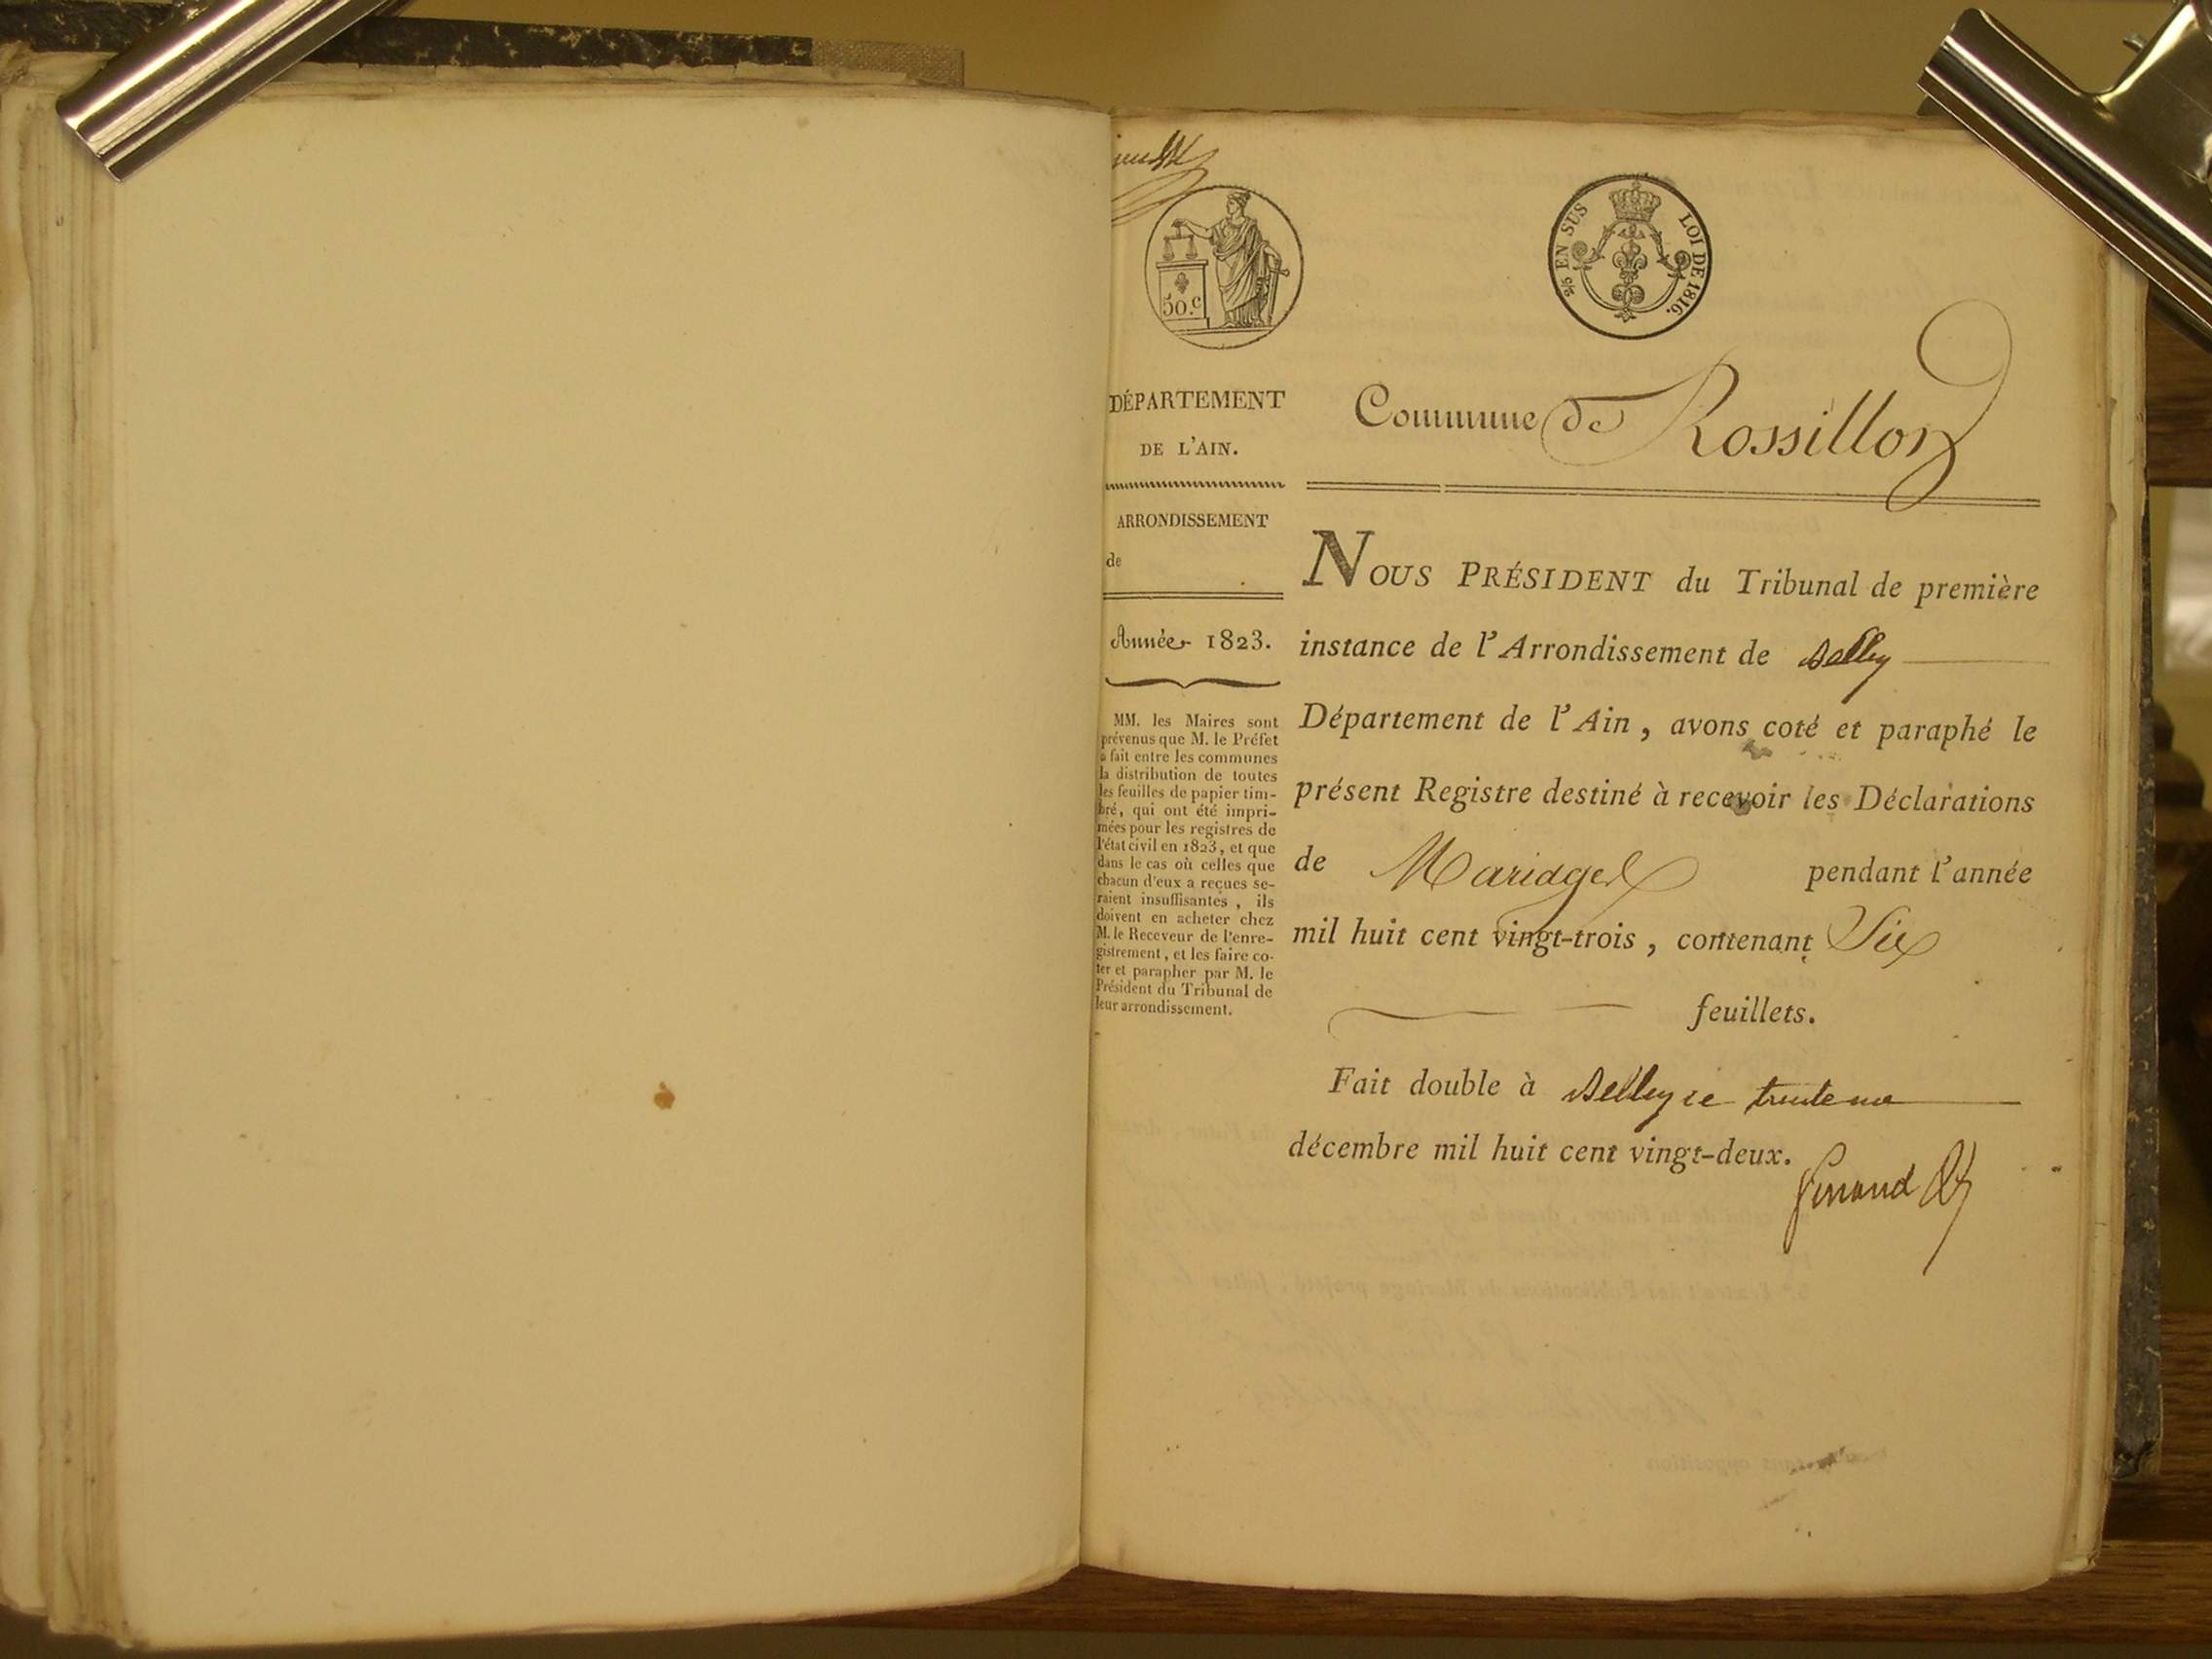 50.c
2/5 EN SUS LOI DE 1816.
DÉPARTEMENT
DE L'AIN.
ARRONDISSEMENT
de
Année 1823.
MM. les Maires sont
prévenus que M. le Préfet
a fait entre les communes
la distribution de toutes
les feuilles de papier tim-
bré, qui ont été impri-
mées pour les registres de
l'état civil en 1823, et que
dans le cas où celles que
chacun d'eux a reçues se-
raient insuffisantes, ils
doivent en acheter chez
M. le Receveur de l'enre-
gistrement, et les faire co-
ter et parapher par M. le
Président du Tribunal de
leur arrondissement.
Commune de Rossillon
NOUS PRÉSIDENT du Tribunal de première
instance de l'Arrondissement de Belley
Département de l'Ain, avons coté et paraphé le
présent Registre destiné à recevoir les Déclarations
de Mariages pendant l'année
mil huit cent vingt-trois, contenant Six
feuillets.
Fait double à Belley ce trente
décembre mil huit cent vingt-deux.